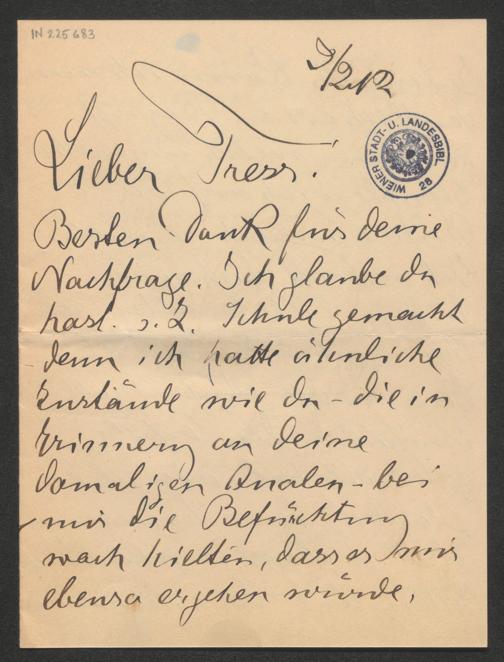 IN 225683
9/2 12
WIENER STADT- U. LANDESBIBL.
28
Lieber Tress!
Besten Dank für deine
Nachfrage. Ich glaube du
hast s. Z. Schule gemacht
denn ich hatte ähnliche
Zustände wie du – die in
Erinnerung an deine
damaligen Qualen – bei
mir die Befürchtung
wach hielten, dass es mir
ebenso ergehen würde.